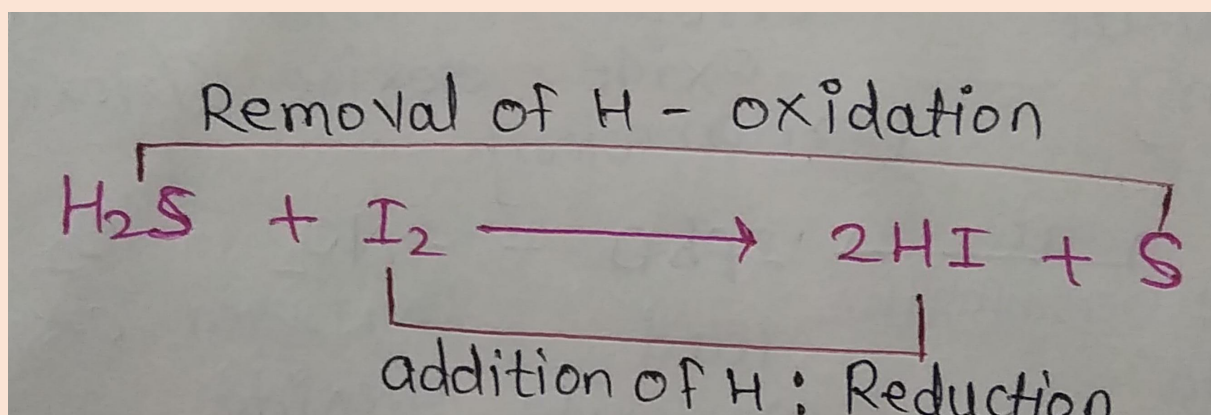 Removal of H - oxidation
H₂S + I₂ ⟶ 2HI + S
addition of H : Reduction